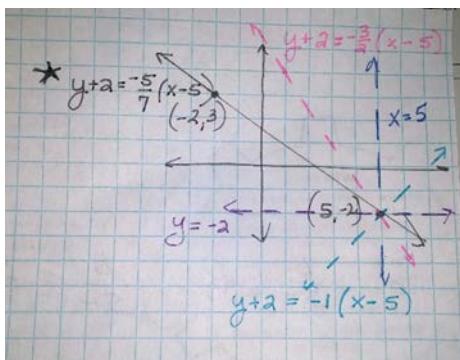 y+2=-3/2(x-5)
★ y+2=-5/7(x-5)
(-2,3)
x=5
(5,-2)
y=-2
y+2=-1(x-5)